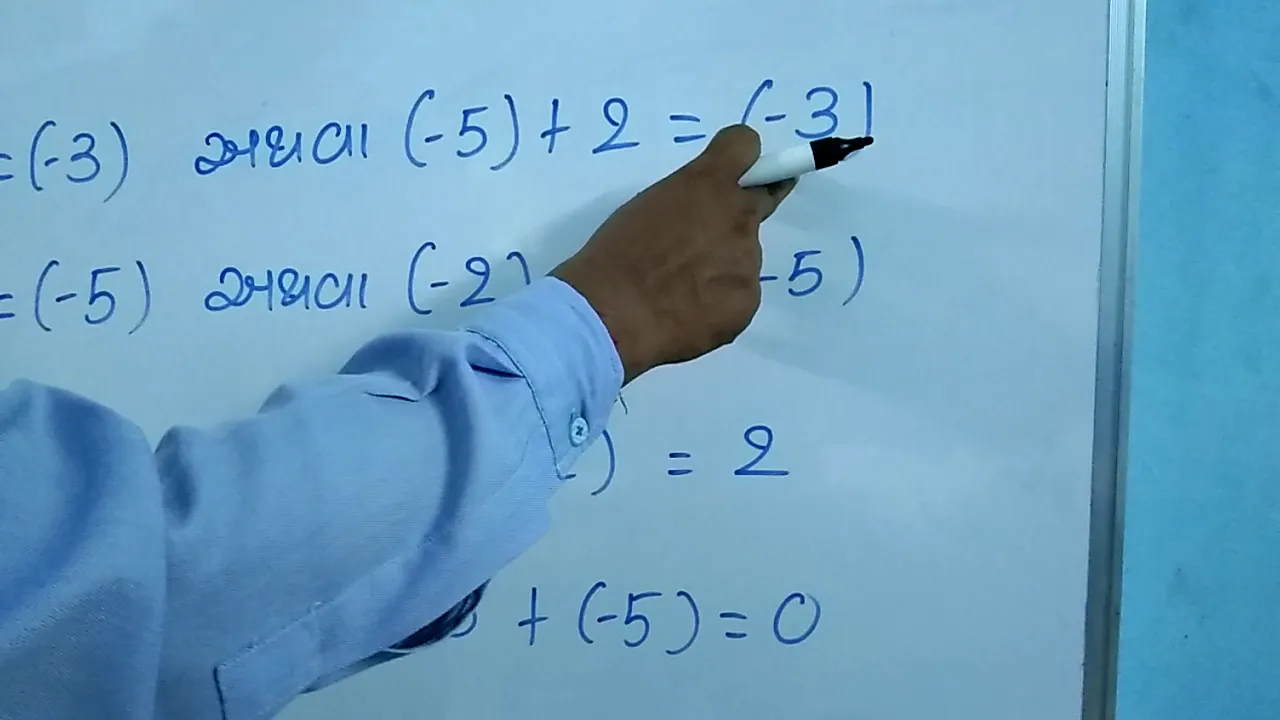 = (-3) અથવા (-5) + 2 = (-3)
= (-5) અથવા (-2) -5)
) = 2
+ (-5) = 0